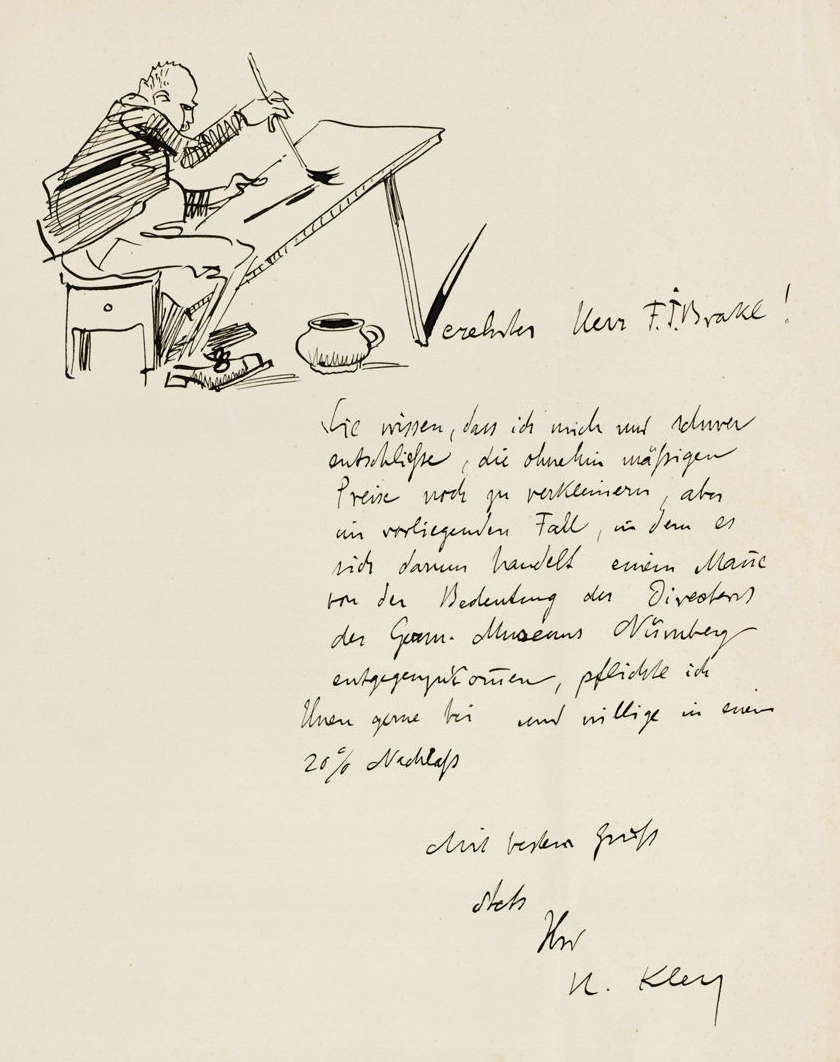 Verehrter Herr F. J. Brakl!
Sie wissen, dass ich mich nur schwer
entschließe, die ohnehin mäßigen
Preise noch zu verkleinern, aber
im vorliegenden Fall, in dem es
sich darum handelt einem Mañe
von der Bedeutung des Directors
des Germ. Museums Nürnberg
entgegenzukom̄en, pflichte ich
Ihnen gerne bei und willige in einen
20% Nachlaß
Mit bestem Gruß
stets
Ihr
H. Kley